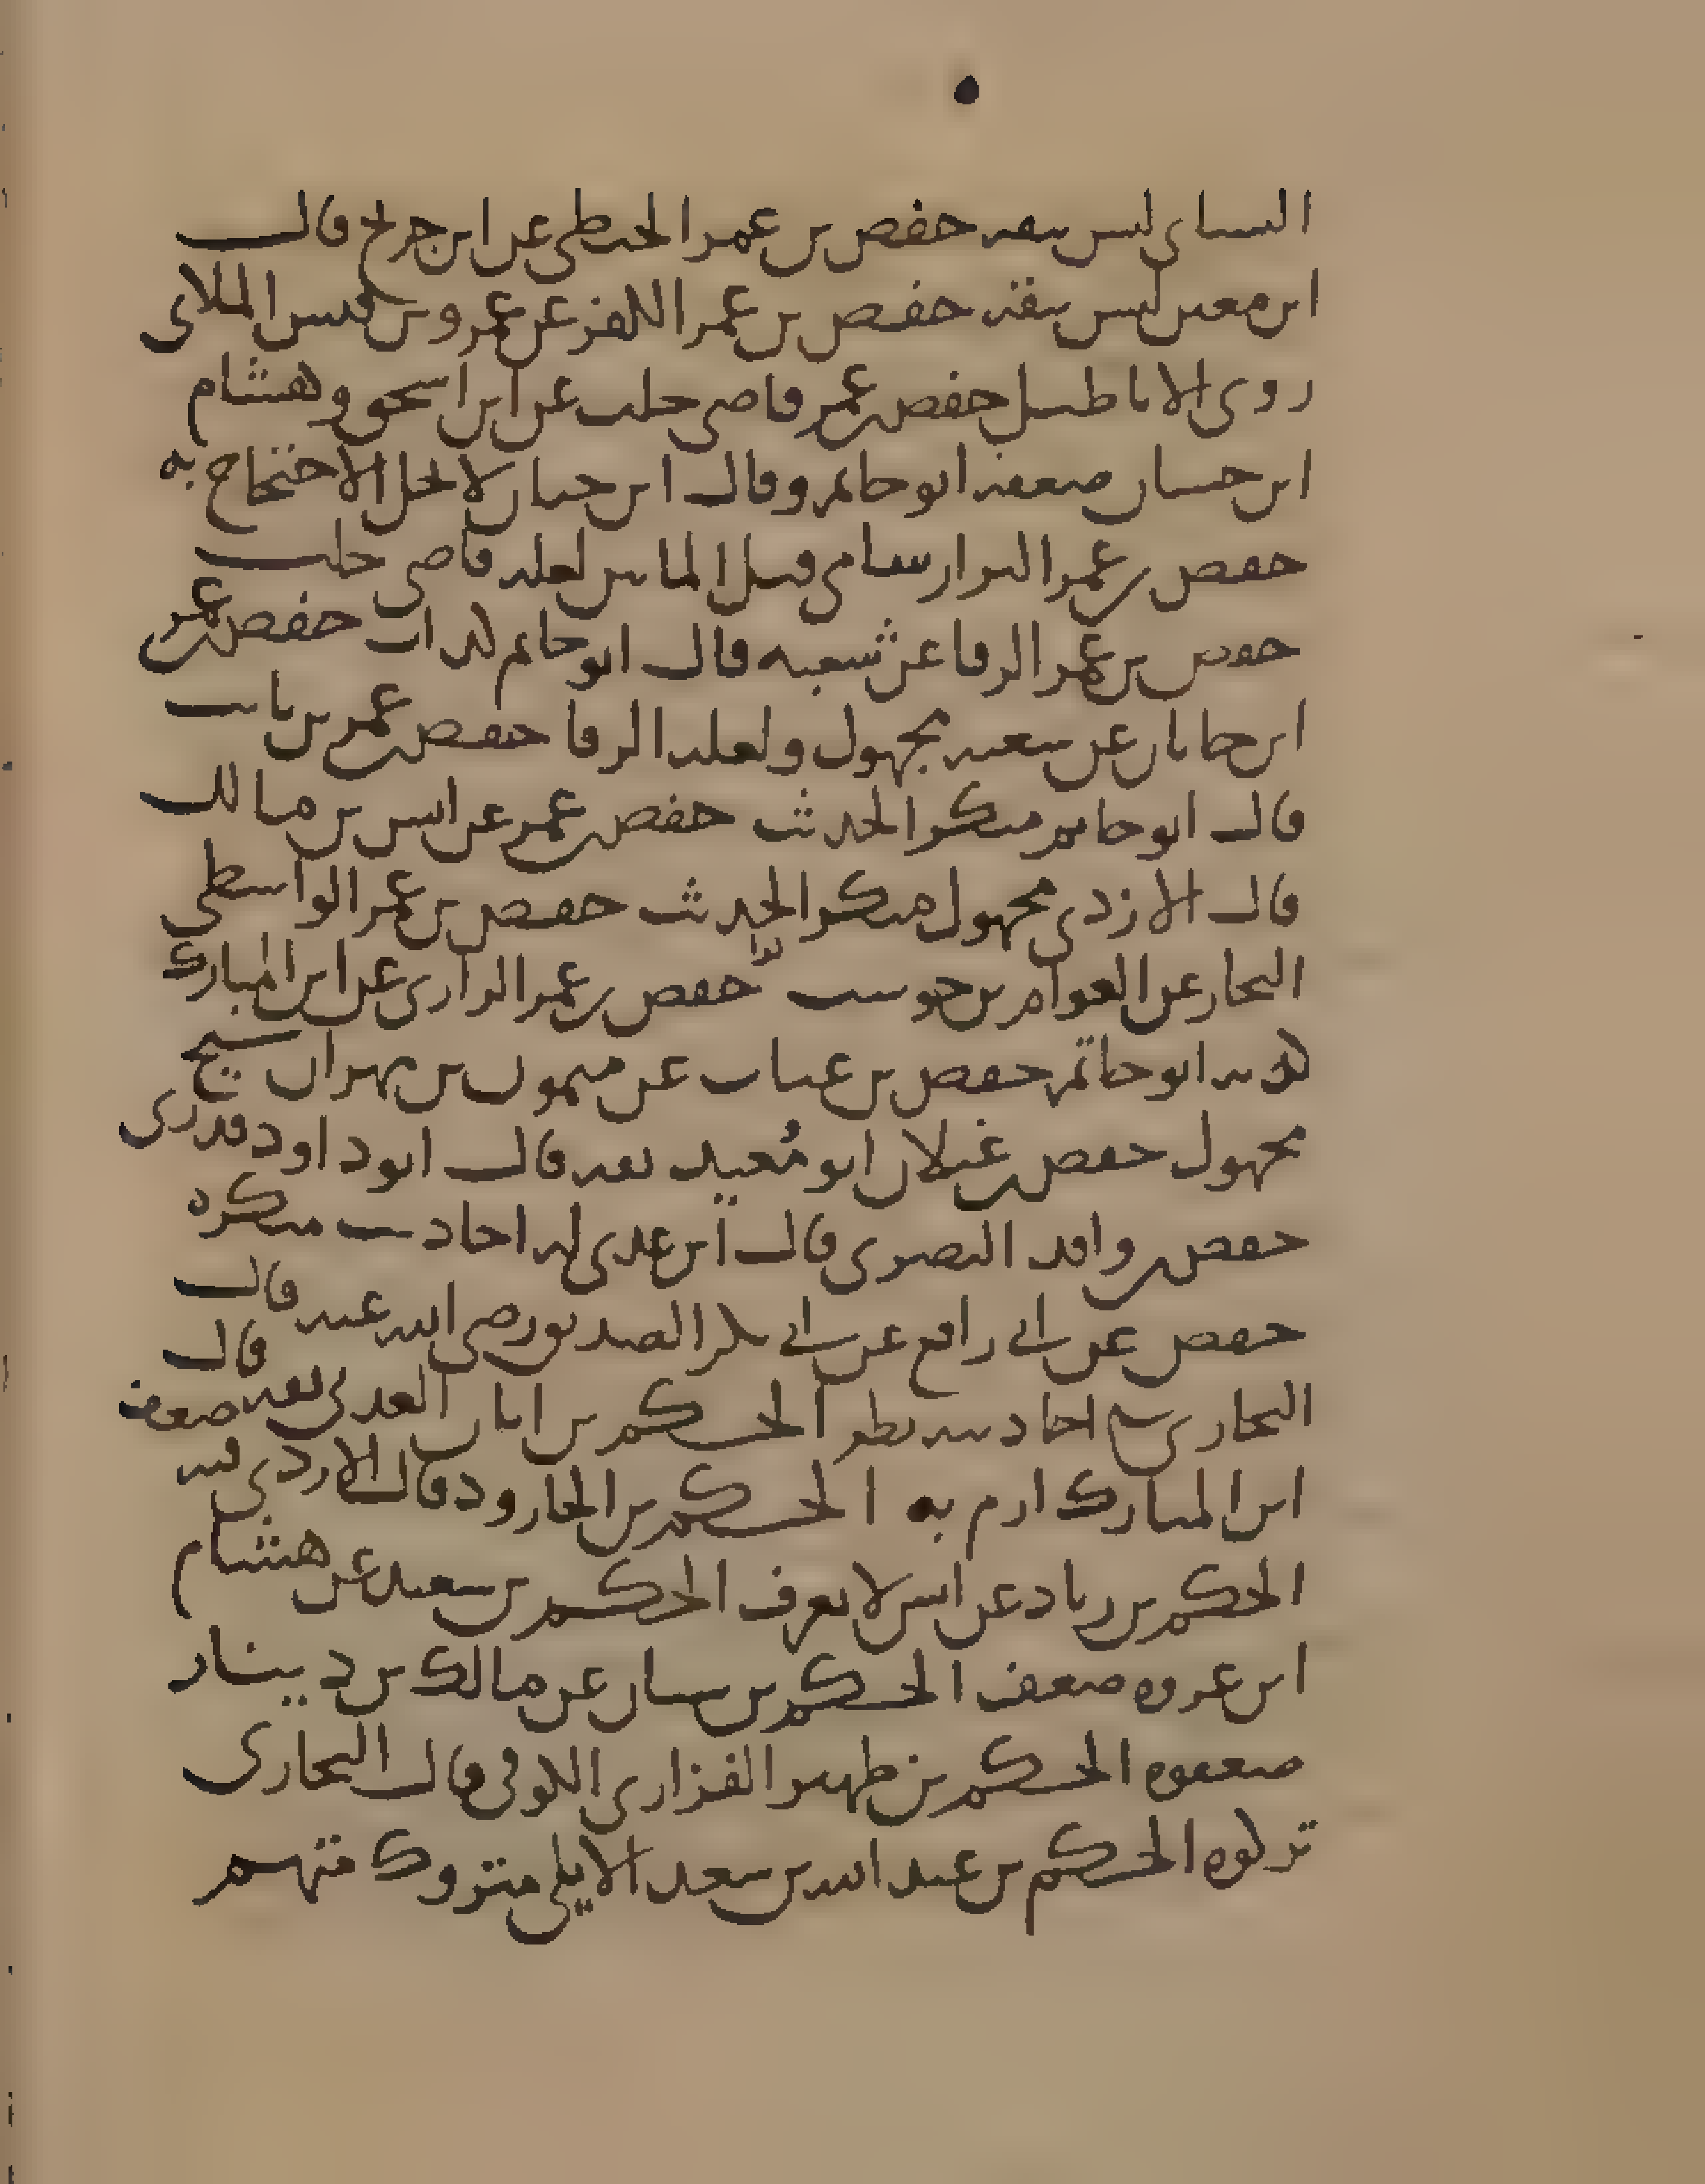 النسائي ليس بثقة حفص بن عمر الحبطي عن ابن جريج قال
ابن معين ليس بثقة حفص بن عمر اللفز عن عمرو بن قيس الملائي
روى الاباطيل حفص بن عمر قاضي حلب عن ابن اسحق وهشام
ابن حسان ضعفه ابو حاتم وقال ابن حبان لا يحل الاحتجاج به
حفص بن عمر البزار شامي قبل المائتين لعله قاضي حلب
حفص بن عمر الرفا عن شعبه قال ابو حاتم كذاب حفص بن عمر
ابن جابان عن شعبه مجهول ولعله الرفا حفص بن عمر بن ثابت
قال ابو حاتم منكر الحديث حفص بن عمر عن انس بن مالك
قال الازدي مجهول منكر الحديث حفص بن عمر الواسطي
البخار عن العوام بن حوشب حفص بن عمر الرازي عن ابن المبارك
كذبه ابو حاتم حفص بن عتاب عن ميمون بن مهران شيخ
مجهول حفص بن غيلان ابو مُعيد ثقه قال ابو داود قدري
حفص بن واقد البصري قال ابن عدي له احاديث منكره
حفص عن ابي رافع عن ابي بكر الصديق رضي الله عنه قال
البخاري في احاديثه نظر الحكم بن ابان العدني ثقه قال
ابن المبارك ارم به الحكم بن الجارود قال الازدي فيه ضعف
الحكم بن زياد عن انس لا يعرف الحكم بن سعيد عن هشام
ابن عروه ضعيف الحكم بن سنان عن مالك بن دينار
ضعفوه الحكم بن ظهير الفزاري الكوفي قال البخاري
تركوه الحكم بن عبد الله بن سعد الايلي متروك متهم